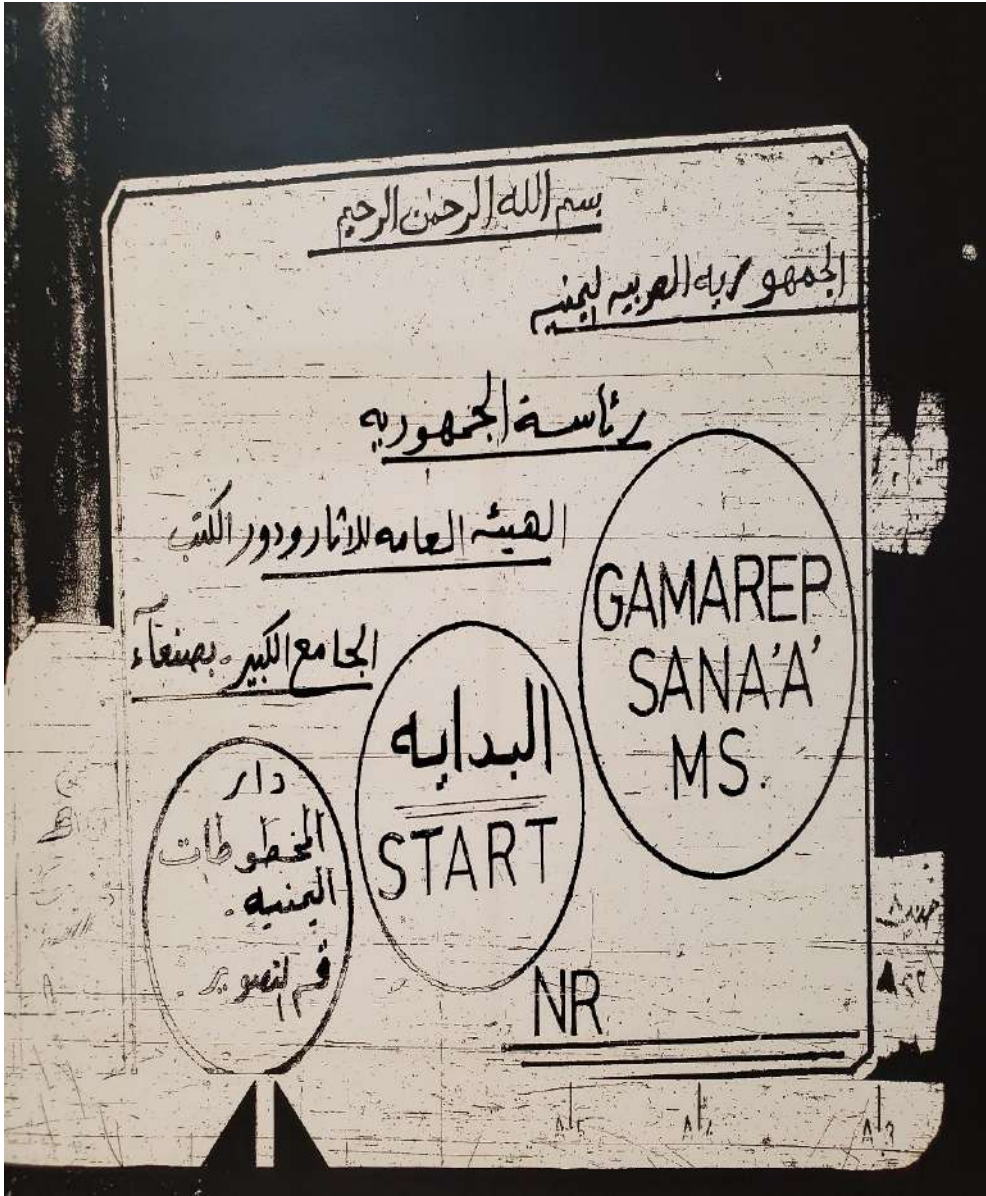 بسم الله الرحمن الرحيم
الجمهوريه العربيه ليمنيه
رئاسة الجمهوريه
الهيئه العامه للاثار ودور الكتب
الجامع الكبير - بصنعآء
GAMAREP
SANA'A'
MS.
البدايه
START
دار
المخطوطات
اليمنيه.
قسم التصوير.
NR
A5
A4
A3